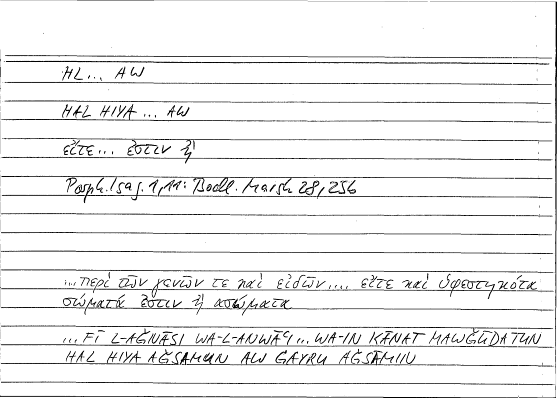 HL... AW
HAL HIYA ... AW
εἴτε... ἐστιν ἢ
Porph. Isag. 1,11: Bodl. Marsh 28, 256
...περὶ τῶν γενῶν τε καὶ εἰδῶν.... εἴτε καὶ ὑφεστηκότα
σώματά ἐστιν ἢ ἀσώματα
... FĪ L-AǦNĀSI WA-L-ANWĀʿI ... WA-IN KĀNAT MAWǦŪDATUN
HAL HIYA AǦSAMUN AW ĠAYRU AǦSĀMIN